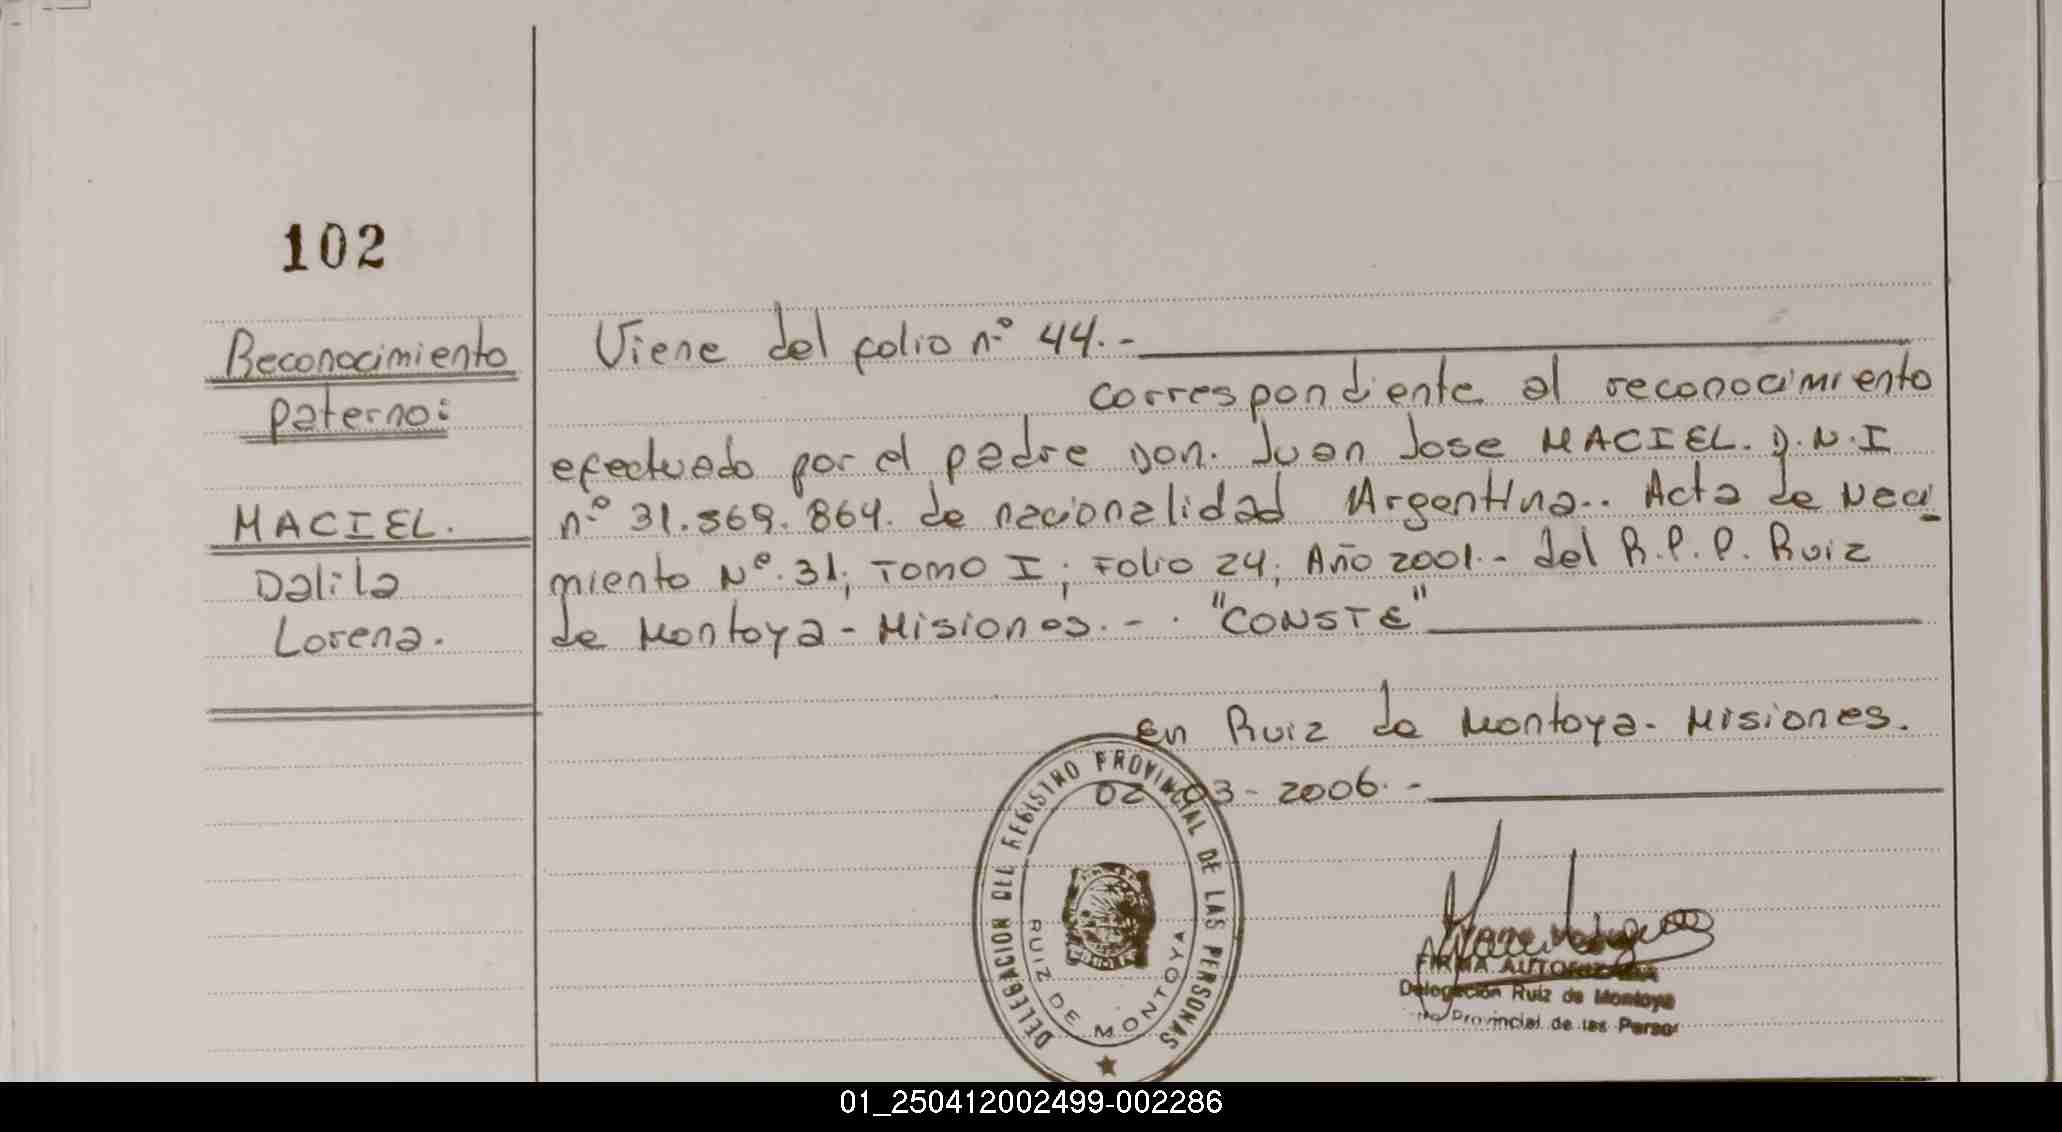 102
Reconocimiento
paterno:
MACIEL.
Dalila
Lorena.
Viene del folio n.º 44. -
correspondiente al reconocimiento
efectuado por el padre Don. Juan Jose MACIEL. D.N.I
n.º 31.569.864. de nacionalidad Argentina.. Acta de Naci_
miento Nº. 31; Tomo I; Folio 24; Año 2001.- del R.P.P. Ruiz
de Montoya - Misiones. - . "CONSTE"
En Ruiz de Montoya - Misiones.
02 03 - 2006. -
DELEGACION DEL REGISTRO PROVINCIAL DE LAS PERSONAS
RUIZ DE MONTOYA
FIRMA AUTORIZADA
Delegación Ruiz de Montoya
Provincial de las Perso
01_250412002499-002286